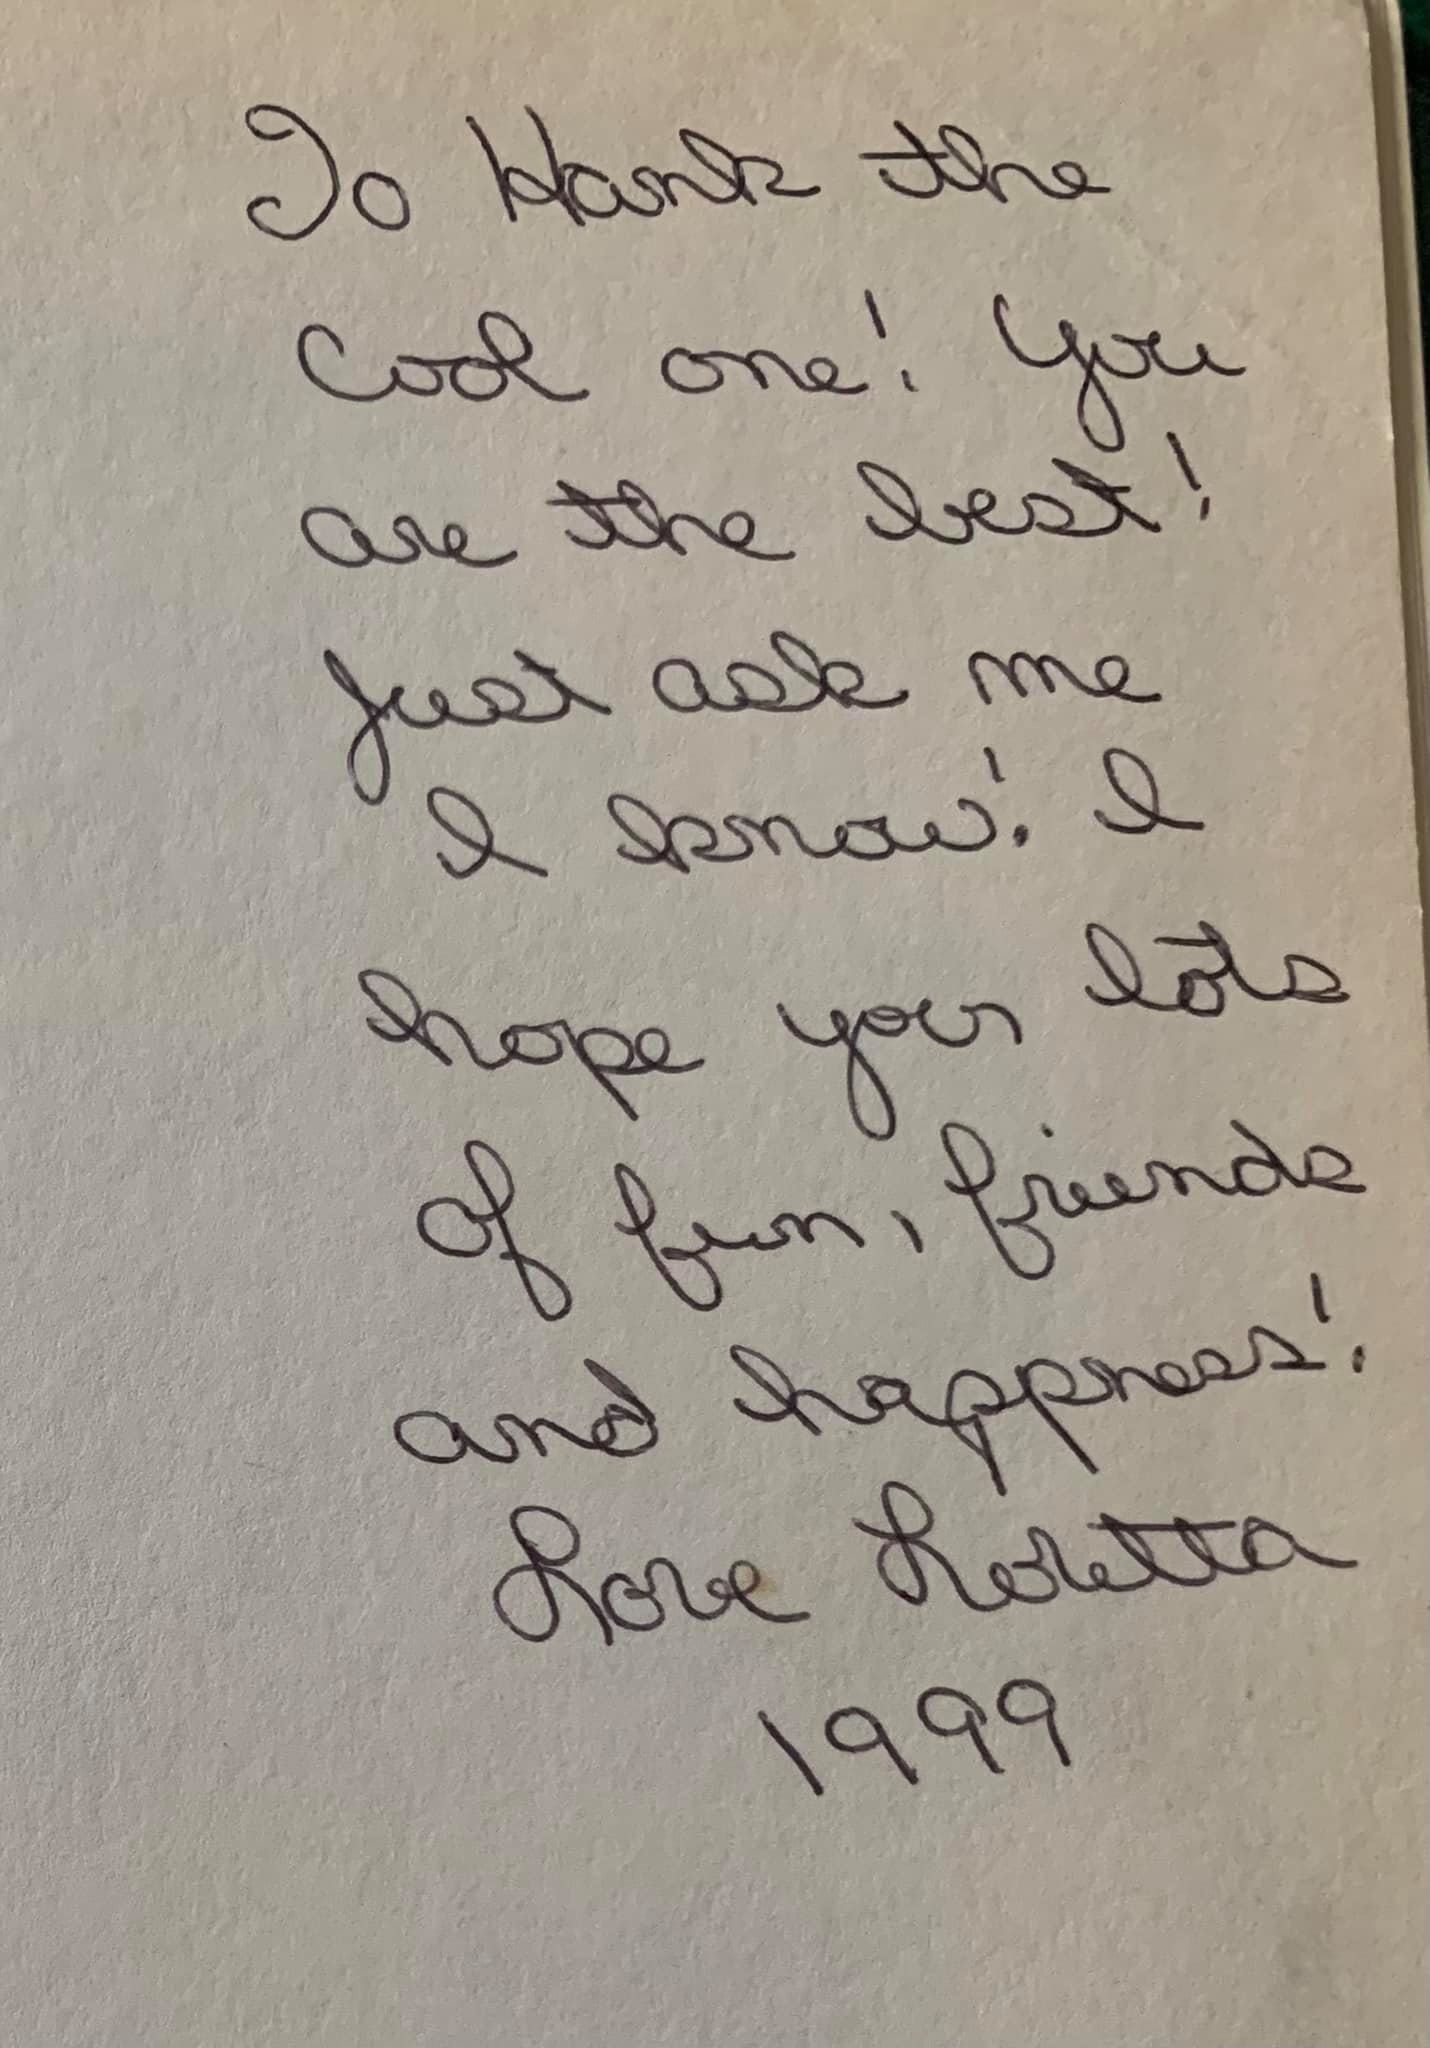 To Hank the
Cool one! You
are the best!
just ask me
I know! I
hope your lots
of fun, friends
and happness!
Love Loretta
1999